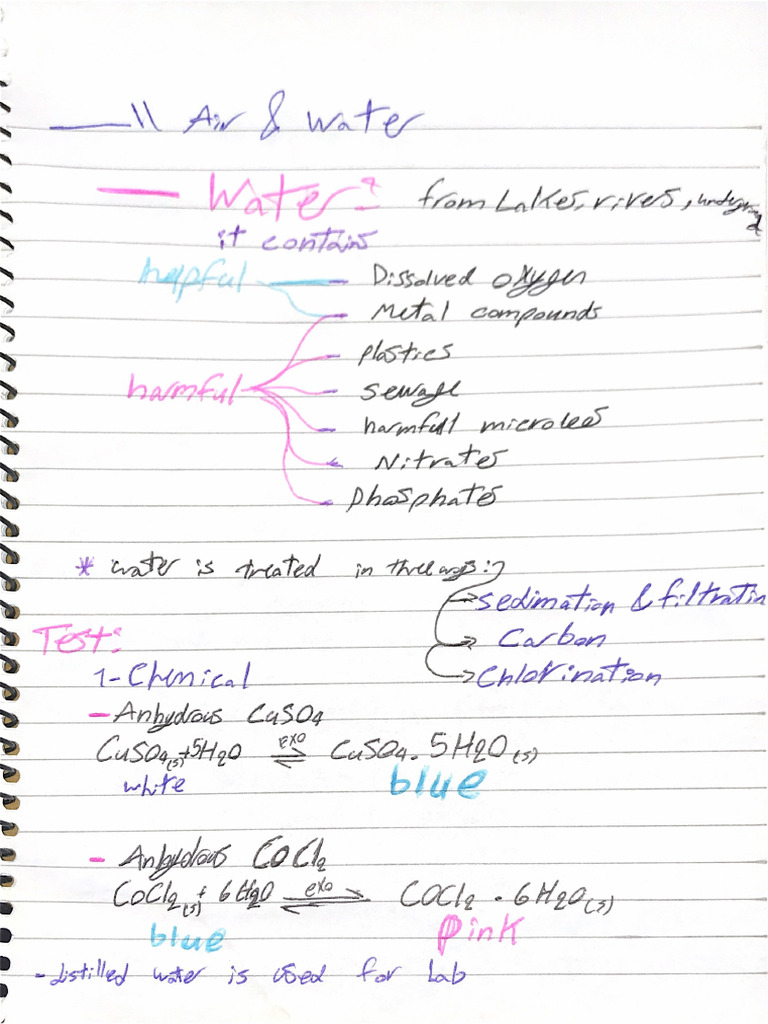 —\\ Air & water
— Water? from Lakes, rivers, undergrnd
it contains
helpful - Dissolved oxygen
- Metal compounds
- plastics
harmful - sewage
- harmfull microbes
- Nitrates
- phosphates
* water is treated in three ways:
→ sedimation & filtratin
→ Carbon
→ Chlorination
Test:
1- Chemical
- Anhydrous CuSO4
CuSO4(s) + 5H2O ⇌ exo CuSO4. 5H2O(s)
white blue
- Anhydrous CoCl2
CoCl2(s) + 6H2O ⇌ exo COCl2 . 6H2O(s)
blue pink
- distilled water is used for Lab